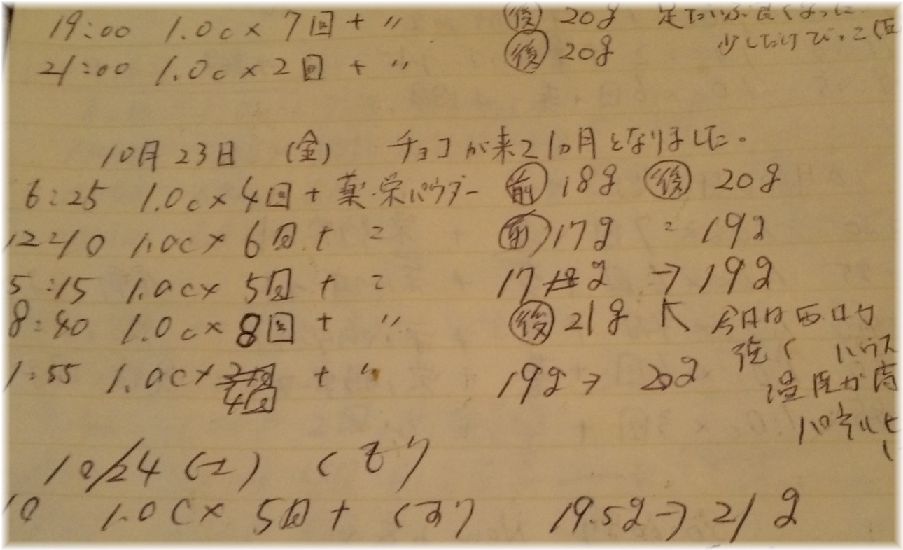 19:00 1.0c×7回+〃 後 20g 足
21:00 1.0c×2回+〃 後 20g 少しだけ
10月23日 (金) チョコが来て1ヵ月となりました。
6:25 1.0c×4回+薬・栄パウダー 前 18g 後 20g
12:10 1.0c×6回+〃 前 17g 〃 19g
5:15 1.0c×5回+〃 17g→19g
8:40 1.0c×8回+〃 後 21g 今日は西日が
強く ハウス
1:55 1.0c×4回+〃 19g→20g
温度が高
パネルヒ
10/24(土)
1.0c×5回+ 19.5g→21g